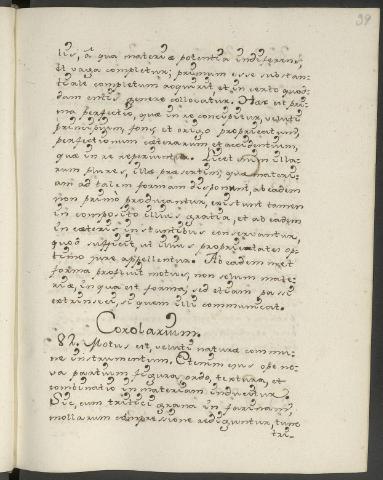 39
lis, á qua materiæ potentia indiferens,
et vaga completur; primum esse substan-
tiale completum acquirit, et in certo quod-
dam entis genere collocatur. Hæc est pri-
ma perfectio, quæ in re concipitur, veluti
principium, fons, et origo proprietatum,
perfectionum cæterarum et accidentium,
quæ in re reperiuntur. Licet enim illa-
rum plures, illæ præsertim, quæ materi-
am ad talem formam disponunt, ab eadem
non primo producantur, existunt tamen
in composito illius gratia, et ab eadem
in cæteris instantibus conservantur,
quod sufficit, ut illius proprietates op-
timo jure appellentur. Ab eadem met
forma profluit motus, non solum mate-
riæ, in qua est forma, sed etiam passi
extrinseci, si quem illi communicat.
Corolarium.
82. Motus est, veluti naturæ commu-
ne instrumentum. Etenim ejus ope no-
va partium figura, ordo, textura, et
combinatio in materiam inducitur.
Sic, cum tritici grana in farinam,
mollarum compressione rediguntur, tunc
tri-